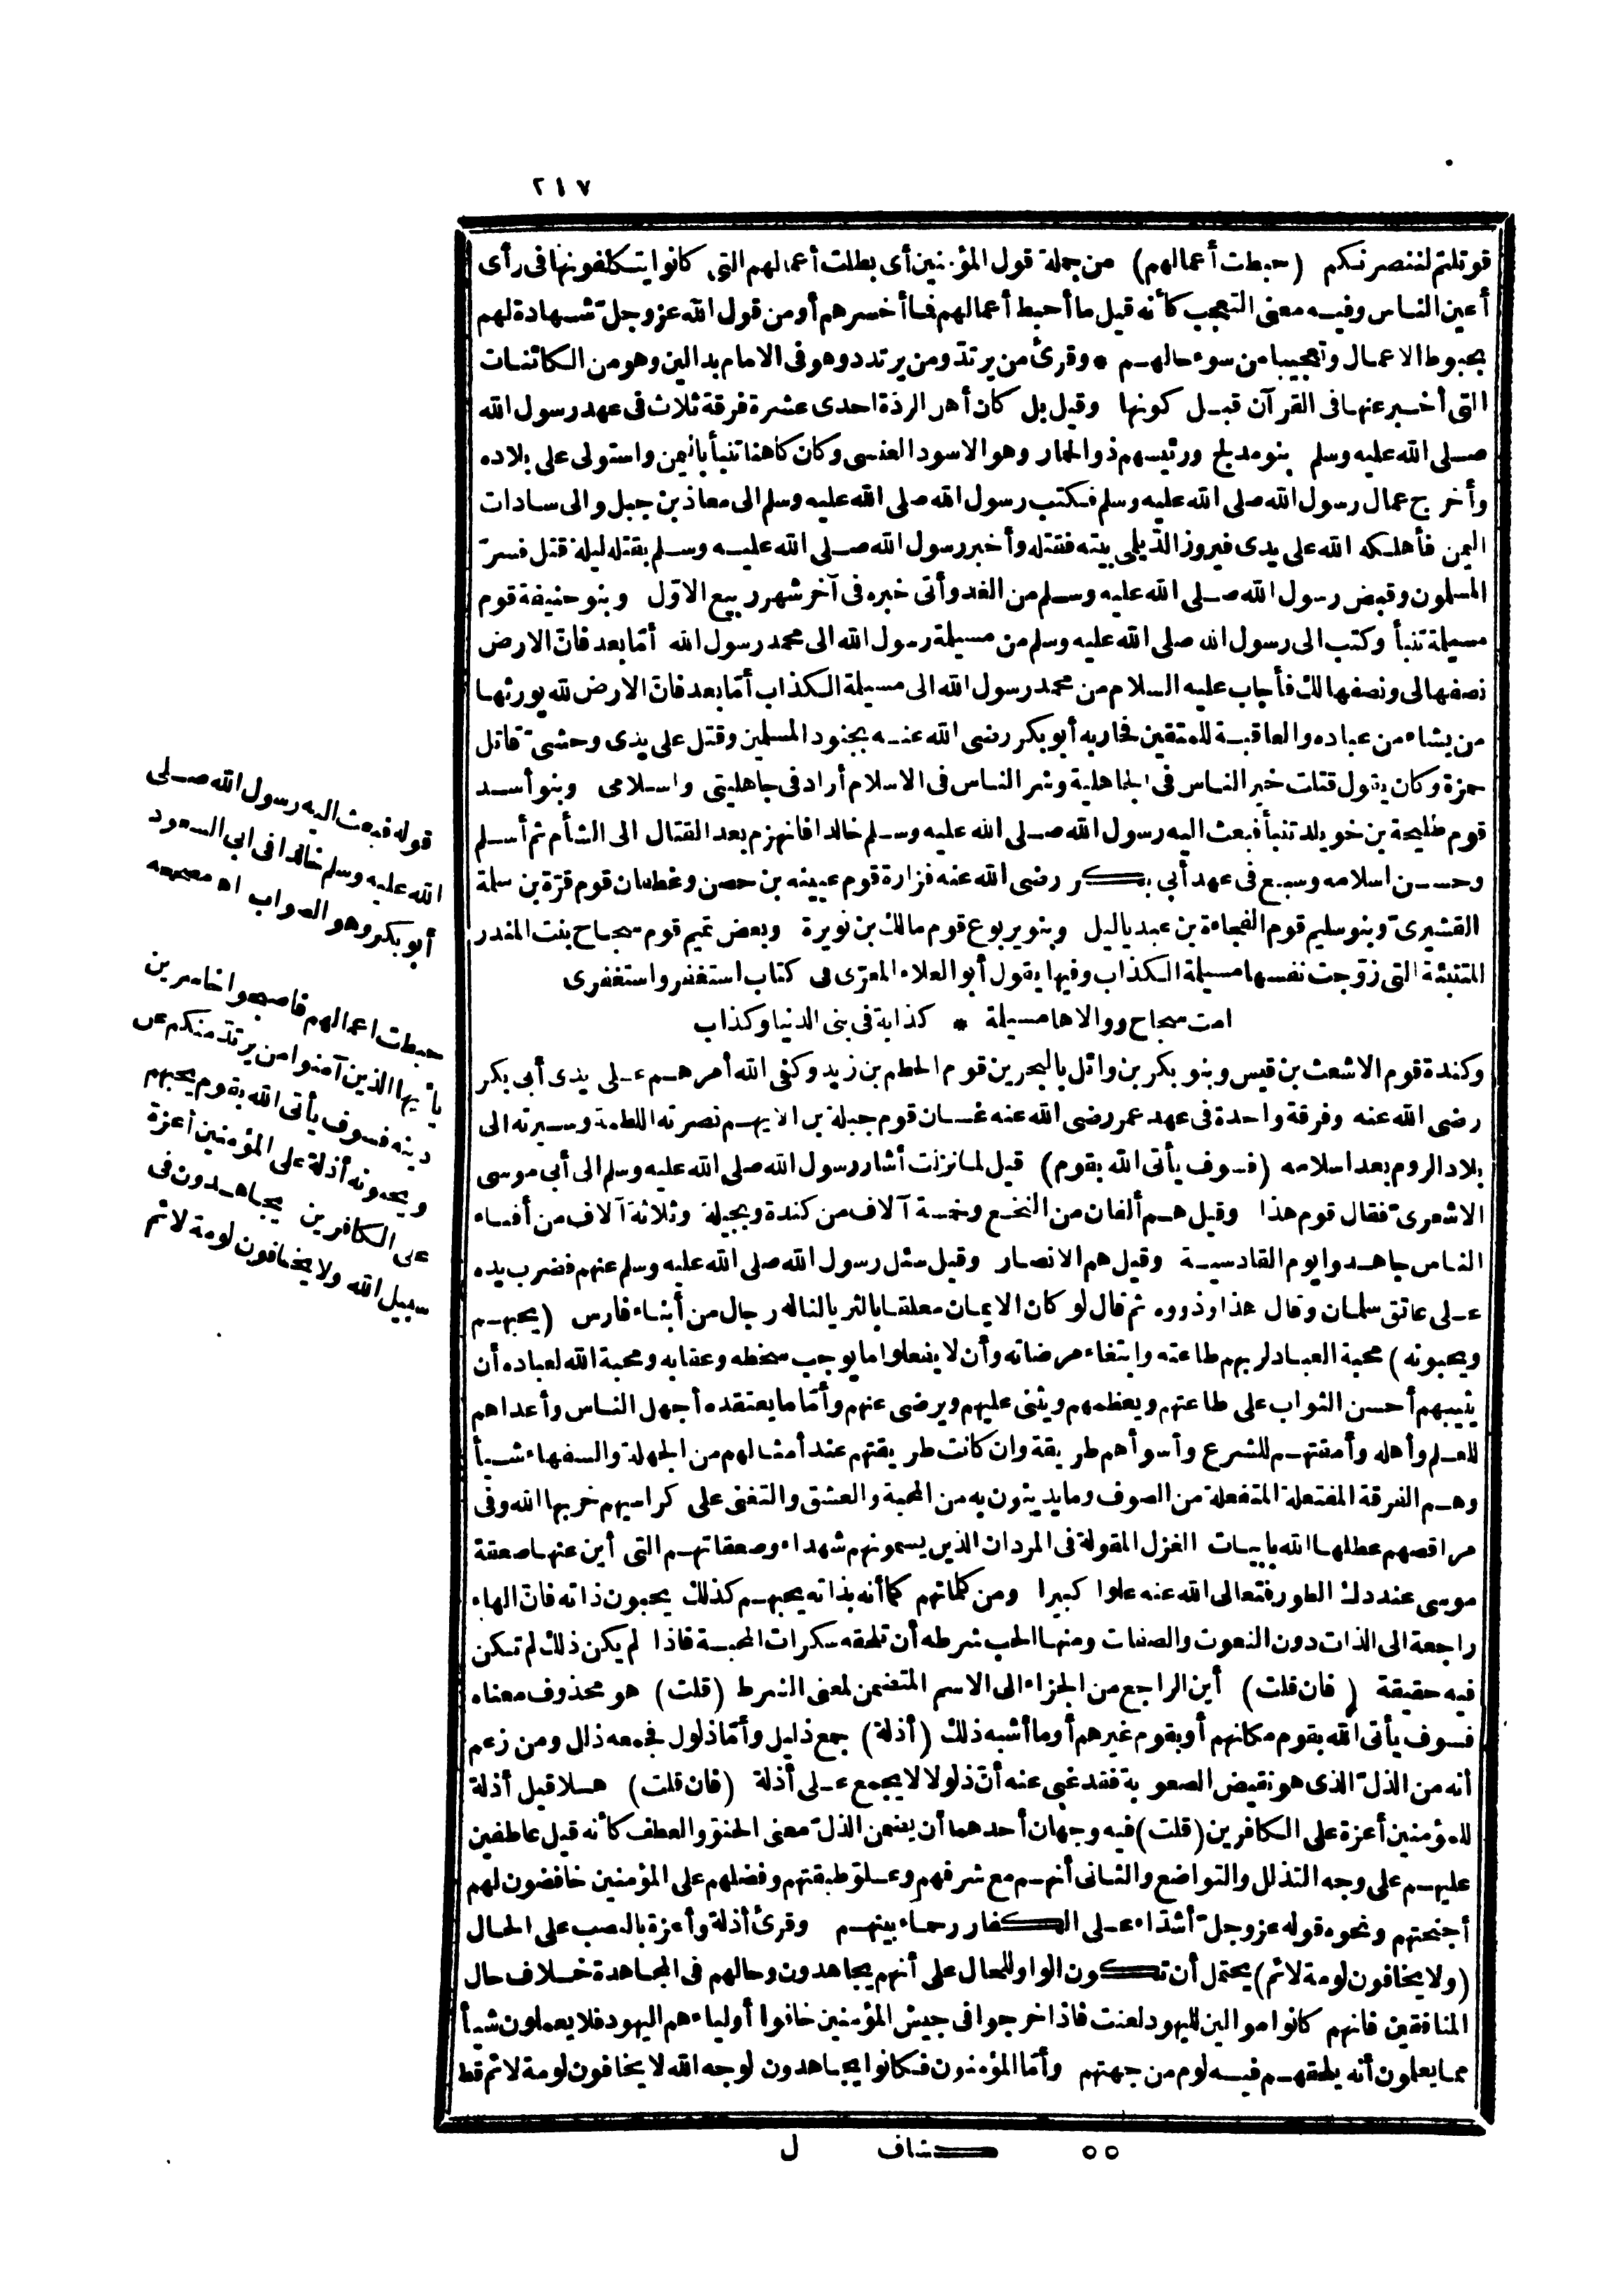 ٢١٧
قوتلتم لننصرنكم (حبطت أعمالهم) من جملة قول المؤمنين أى بطلت أعمالهم التى كانوا يتكلفونها فى رأى
أعين الناس وفيه معنى التعجب كأنه قيل ما أحبط أعمالهم فما أخسرهم أو من قول الله عز وجل شهادة لهم
بحبوط الاعمال وتعجيبا من سوء حالهم * وقرئ من يرتدّ ومن يرتدد وهو فى الامام بدالين وهو من الكائنات
التى أخبر عنها فى القرآن قبل كونها وقيل بل كان أهل الردّة احدى عشرة فرقة ثلاث فى عهد رسول الله
صلى الله عليه وسلم بنو مدلج ورئيسهم ذو الحمار وهو الاسود العنسى وكان كاهنا تنبأ باليمن واستولى على بلاده
وأخرج عمال رسول الله صلى الله عليه وسلم فكتب رسول الله صلى الله عليه وسلم الى معاذ بن جبل والى سادات
اليمن فأهلكه الله على يدى فيروز الديلى بيته فقتله وأخبر رسول الله صلى الله عليه وسلم بقتله ليلة قتل فسرّ
المسلمون وقبض رسول الله صلى الله عليه وسلم من الغد وأتى خبره فى آخر شهر ربيع الاوّل وبنو حنيفة قوم
مسيلمة تنبأ وكتب الى رسول الله صلى الله عليه وسلم من مسيلمة رسول الله الى محمد رسول الله أمّا بعد فانّ الارض
نصفها لى ونصفها لك فأجاب عليه السلام من محمد رسول الله الى مسيلمة الكذاب أمّا بعد فانّ الارض لله يورثها
من يشاء من عباده والعاقبة للمتقين فحاربه أبو بكر رضى الله عنه بجنود المسلمين وقتل على يدى وحشىّ قاتل
حمزة وكان يقول قتلت خير الناس فى الجاهلية وشر الناس فى الاسلام أراد فى جاهليتى واسلامى وبنو أسد
قوم طليحة بن خويلد تنبأ فبعث اليه رسول الله صلى الله عليه وسلم خالدا فانهزم بعد القتال الى الشأم ثم أسلم
وحسن اسلامه وسبع فى عهد أبى بكر رضى الله عنه فزارة قوم عيينه بن حصن وغطفان قوم قرّة بن سلمة
القشيرىّ وبنو سليم قوم الفجاءة بن عبد ياليل وبنو يربوع قوم مالك بن نويرة وبعض تميم قوم سجاح بنت المنذر
المتنبئة التى زوّجت نفسها مسيلمة الكذاب وفيها يقول أبو العلاء المعرّى فى كتاب استغفر واستغفرى
امت سجاح ووالاها مسيلمة * كذابة فى بنى الدنيا وكذاب
وكندة قوم الاشعث بن قيس وبنو بكر بن وائل بالبحرين قوم الحطم بن زيد وكفى الله أمرهم على يدى أبى بكر
رضى الله عنه وفرقة واحدة فى عهد عمر رضى الله عنه غسان قوم جبلة بن الايهم نصرته اللطمة وسيرته الى
بلاد الروم بعد اسلامه (فسوف يأتى الله بقوم) قيل لما نزلت أشار رسول الله صلى الله عليه وسلم الى أبى موسى
الاشعرىّ فقال قوم هذا وقيل هم ألفان من النخع وخمسة آلاف من كندة وبجيلة وثلاثة آلاف من أفناء
الناس جاهدوا يوم القادسية وقيل هم الانصار وقيل سئل رسول الله صلى الله عليه وسلم عنهم فضرب يده
على عاتق سلمان وقال هذا وذووه ثم قال لو كان الايمان معلقا بالثريا لناله رجال من أبناء فارس (يحبهم
ويحبونه) محبة العباد لربهم طاعته وابتغاء مرضاته وأن لا يفعلوا ما يوجب سخطه وعقابه ومحبة الله لعباده أن
يثيبهم أحسن الثواب على طاعتهم ويعظمهم ويثنى عليهم ويرضى عنهم وأمّا ما يعتقده أجهل الناس وأعداهم
للعلم وأهله وأمقتهم للشرع وأسوأهم طريقة وان كانت طريقتهم عند أمثالهم من الجهلة والسفهاء شيأ
وهم الفرقة المفتعلة المتفعلة من الصوف وما يدينون به من المحبة والعشق والتغنى على كراسيهم خربها الله وفى
مراقصهم عطلها الله بأبيات الغزل المقولة فى المردان الذين يسمونهم شهداء وصعقاتهم التى أين عنها صعقة
موسى عند دك الطور فتعالى الله عنه علوا كبيرا ومن كلماتهم كما أنه بذاته يحبهم كذلك يحبون ذاته فانّ الهاء
راجعة الى الذات دون النعوت والصفات ومنها الحب شرطه أن تلحقه سكرات المحبة فاذا لم يكن ذلك لم تكن
فيه حقيقة (فان قلت) أين الراجع من الجزاء الى الاسم المتضمن لمعنى الشرط (قلت) هو محذوف معناه
فسوف يأتى الله بقوم مكانهم أو بقوم غيرهم أو ما أشبه ذلك (أذلة) جمع ذليل وأمّا ذلول فجمعه ذلل ومن زعم
أنه من الذلّ الذى هو نقيض الصعوبة فقد غبى عنه أنّ ذلولا لا يجمع على أذلة (فان قلت) هلا قيل أذلة
للمؤمنين أعزة على الكافرين (قلت) فيه وجهان أحدهما أن يضمن الذلّ معنى الحنوّ والعطف كأنه قيل عاطفين
عليهم على وجه التذلل والتواضع والثانى أنهم مع شرفهم وعلوّ طبقتهم وفضلهم على المؤمنين خافضون لهم
أجنحتهم ونحوه قوله عز وجلّ أشدّاء على الكفار رحماء بينهم وقرئ أذلة وأعزة بالنصب على الحال
(ولا يخافون لومة لائم) يحتمل أن تكون الواو للحال على أنهم يجاهدون وحالهم فى المجاهدة خلاف حال
المنافقين فانهم كانوا موالين لليهود لعنت فاذا خرجوا فى جيش المؤمنين خافوا أولياءهم اليهود فلا يعملون شيأ
مما يعلمون أنه يلحقهم فيه لوم من جهتهم وأمّا المؤمنون فكانوا يجاهدون لوجه الله لا يخافون لومة لائم قط
٥٥ كشاف ل
قوله فبعث اليه رسول الله صلى
الله عليه وسلم خالدا فى ابى السعود
أبو بكر وهو الصواب اه مصححه
حبطت اعمالهم فاصبحوا خاسرين
يأيها الذين آمنوا من يرتدّ منكم عن
دينه فسوف يأتى الله بقوم يحبهم
ويحبونه أذلة على المؤمنين أعزة
على الكافرين يجاهدون فى
سبيل الله ولا يخافون لومة لائم